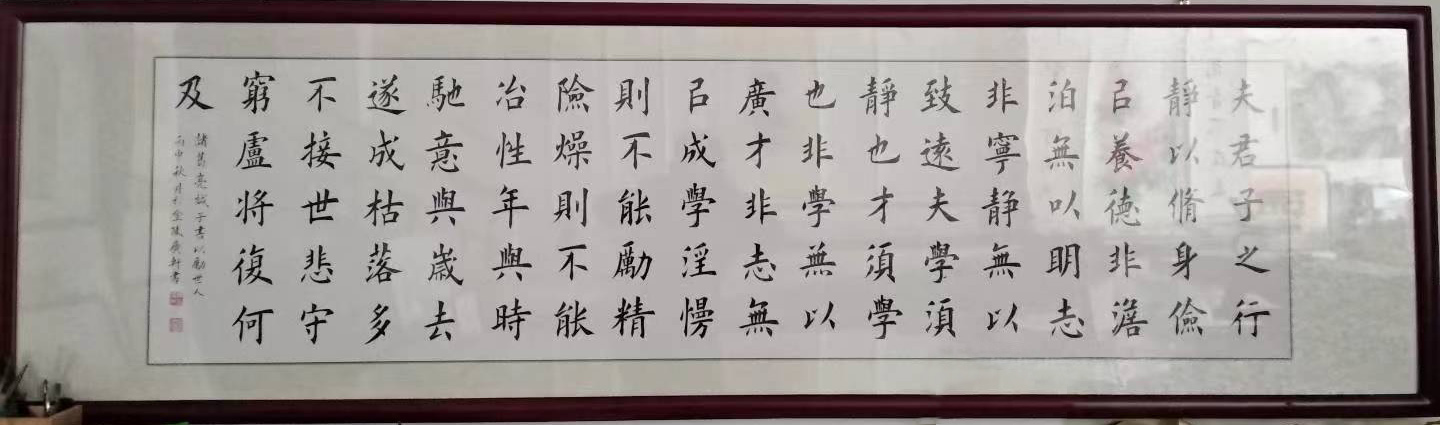 夫君子之行
静以脩身儉
㠯養德非澹
泊無以明志
非寧静無以
致遠夫學須
靜也才須學
也非學無以
廣才非志無
㠯成學淫慢
則不能勵精
險燥則不能
冶性年與時
馳意與歲去
遂成枯落多
不接世悲守
窮廬將復何
及
諸葛亮誡子書以勵世人
丙申秋月
書